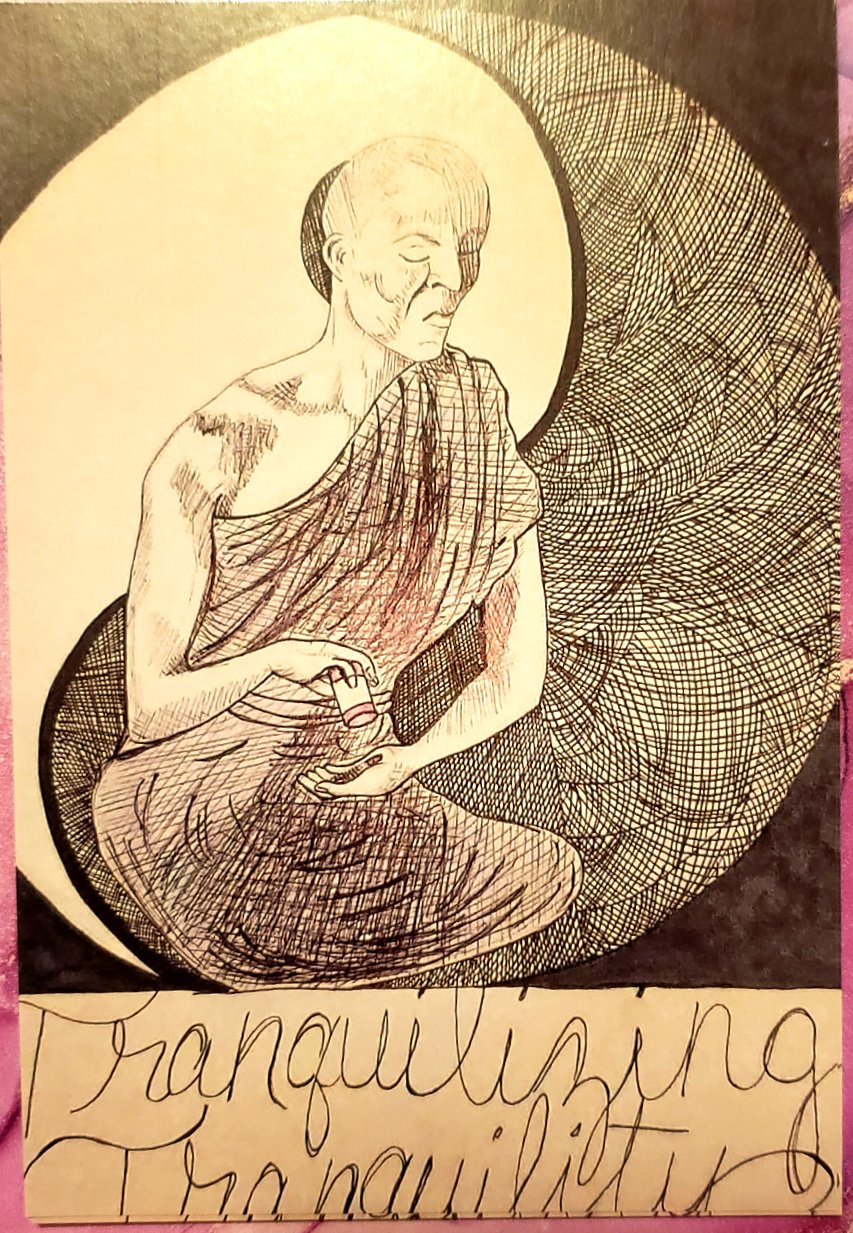 Tranquilizing
Tranquility